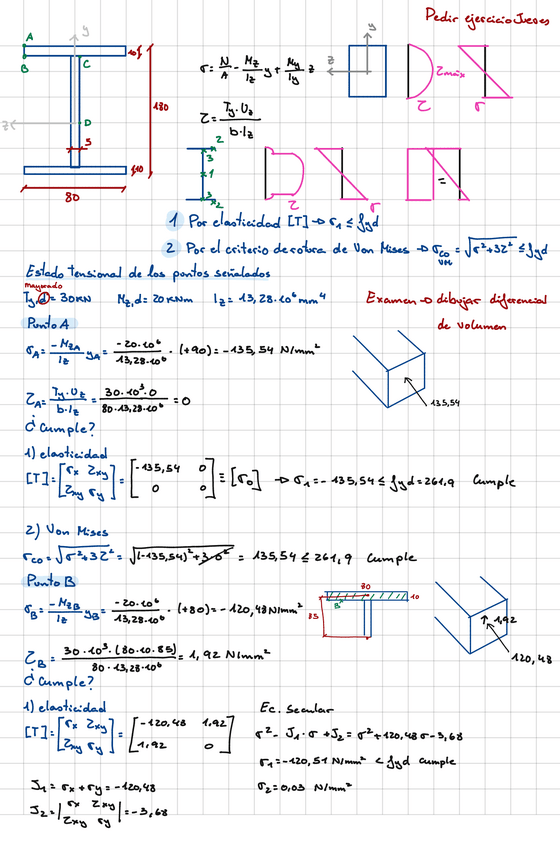 Pedir ejercicio Jueves
A
B
C
D
y
z
10
180
5
10
80
σ = N/A - Mz/Iz y + My/Iy z
y
z
τmáx
τ
σ
τ = Ty·Uz / b·Iz
2
3
1
3
2
τ
σ
=
1 Por elasticidad [T] → σ1 ≤ fyd
2 Por el criterio de rotura de Von Mises → σco = √σ²+3τ² ≤ fyd
VM
Estado tensional de los puntos señalados
mayorado
Ty,d = 30 kN Mz,d = 20 kNm Iz = 13,28·10⁶ mm⁴
Examen → dibujar diferencial de volumen
Punto A
σA = -MzA/Iz yA = -20·10⁶/13,28·10⁶ · (+90) = -135,54 N/mm²
135,54
τA = Ty·Uz/b·Iz = 30·10³·0/80·13,28·10⁶ = 0
¿Cumple?
1) elasticidad
[T] = [σx τxy; τxy σy] = [-135,54 0; 0 0] ≡ [σ0] → σ1 = -135,54 ≤ fyd = 261,9 Cumple
2) Von Mises
σco = √σ²+3τ² = √(-135,54)²+3·0² = 135,54 ≤ 261,9 Cumple
Punto B
σB = -MzB/Iz yB = -20·10⁶/13,28·10⁶ · (+80) = -120,48 N/mm²
80
10
B
85
1,92
120,48
τB = 30·10³·(80·10·85)/80·13,28·10⁶ = 1,92 N/mm²
¿Cumple?
1) elasticidad
[T] = [σx τxy; τxy σy] = [-120,48 1,92; 1,92 0]
Ec. secular
σ² - J1·σ + J2 = σ² + 120,48σ - 3,68
σ1 = -120,51 N/mm² < fyd cumple
σ2 = 0,03 N/mm²
J1 = σx + σy = -120,48
J2 = |σx τxy; τxy σy| = -3,68